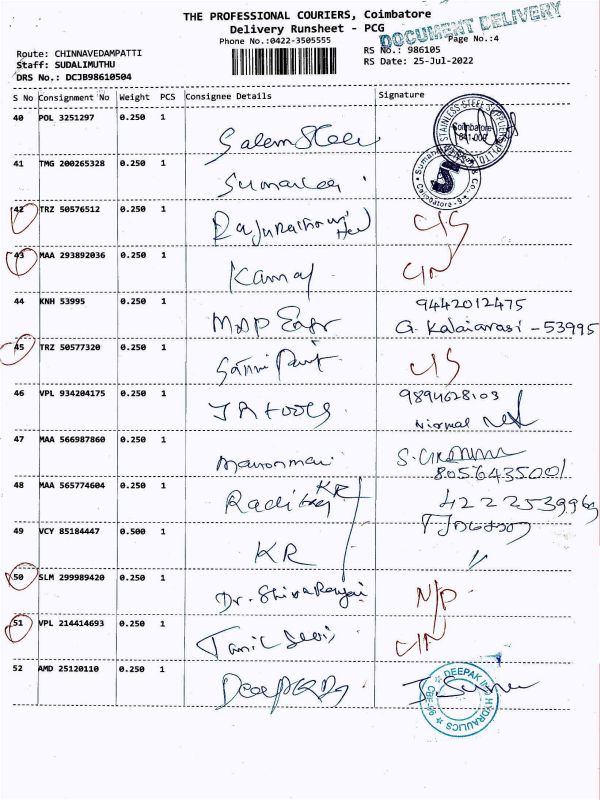 THE PROFESSIONAL COURIERS, Coimbatore
Delivery Runsheet - PCG
DOCUMENT DELIVERY
Phone No.:0422-3505555
Page No.:4
Route: CHINNAVEDAMPATTI
RS No.: 986105
Staff: SUDALIMUTHU
RS Date: 25-Jul-2022
DRS No.: DCJB98610504
S No Consignment No Weight PCS Consignee Details Signature
40 POL 3251297 0.250 1 Salem Steel
STAINLESS STEEL
Coimbatore
641 006
41 TMG 200265328 0.250 1
Coimbatore - 6
42 TRZ 50576512 0.250 1 C/S
43 MAA 293892036 0.250 1 Kamal C/N
44 KNH 53995 0.250 1 9442012475
G. Kalaiarasi - 53995
45 TRZ 50577320 0.250 1 C/S
46 VPL 934204175 0.250 1 JR tools 9894628103
Nirmal
47 MAA 566987860 0.250 1 S.
8056435001
48 MAA 565774604 0.250 1 KR 4222539969
49 VCY 85184447 0.500 1 KR
50 SLM 299989420 0.250 1 Dr. Shiva Ranjai N/P
51 VPL 214414693 0.250 1 Tamil Selvi C/N
52 AMD 25120110 0.250 1
DEEPAK
HYDRAULICS